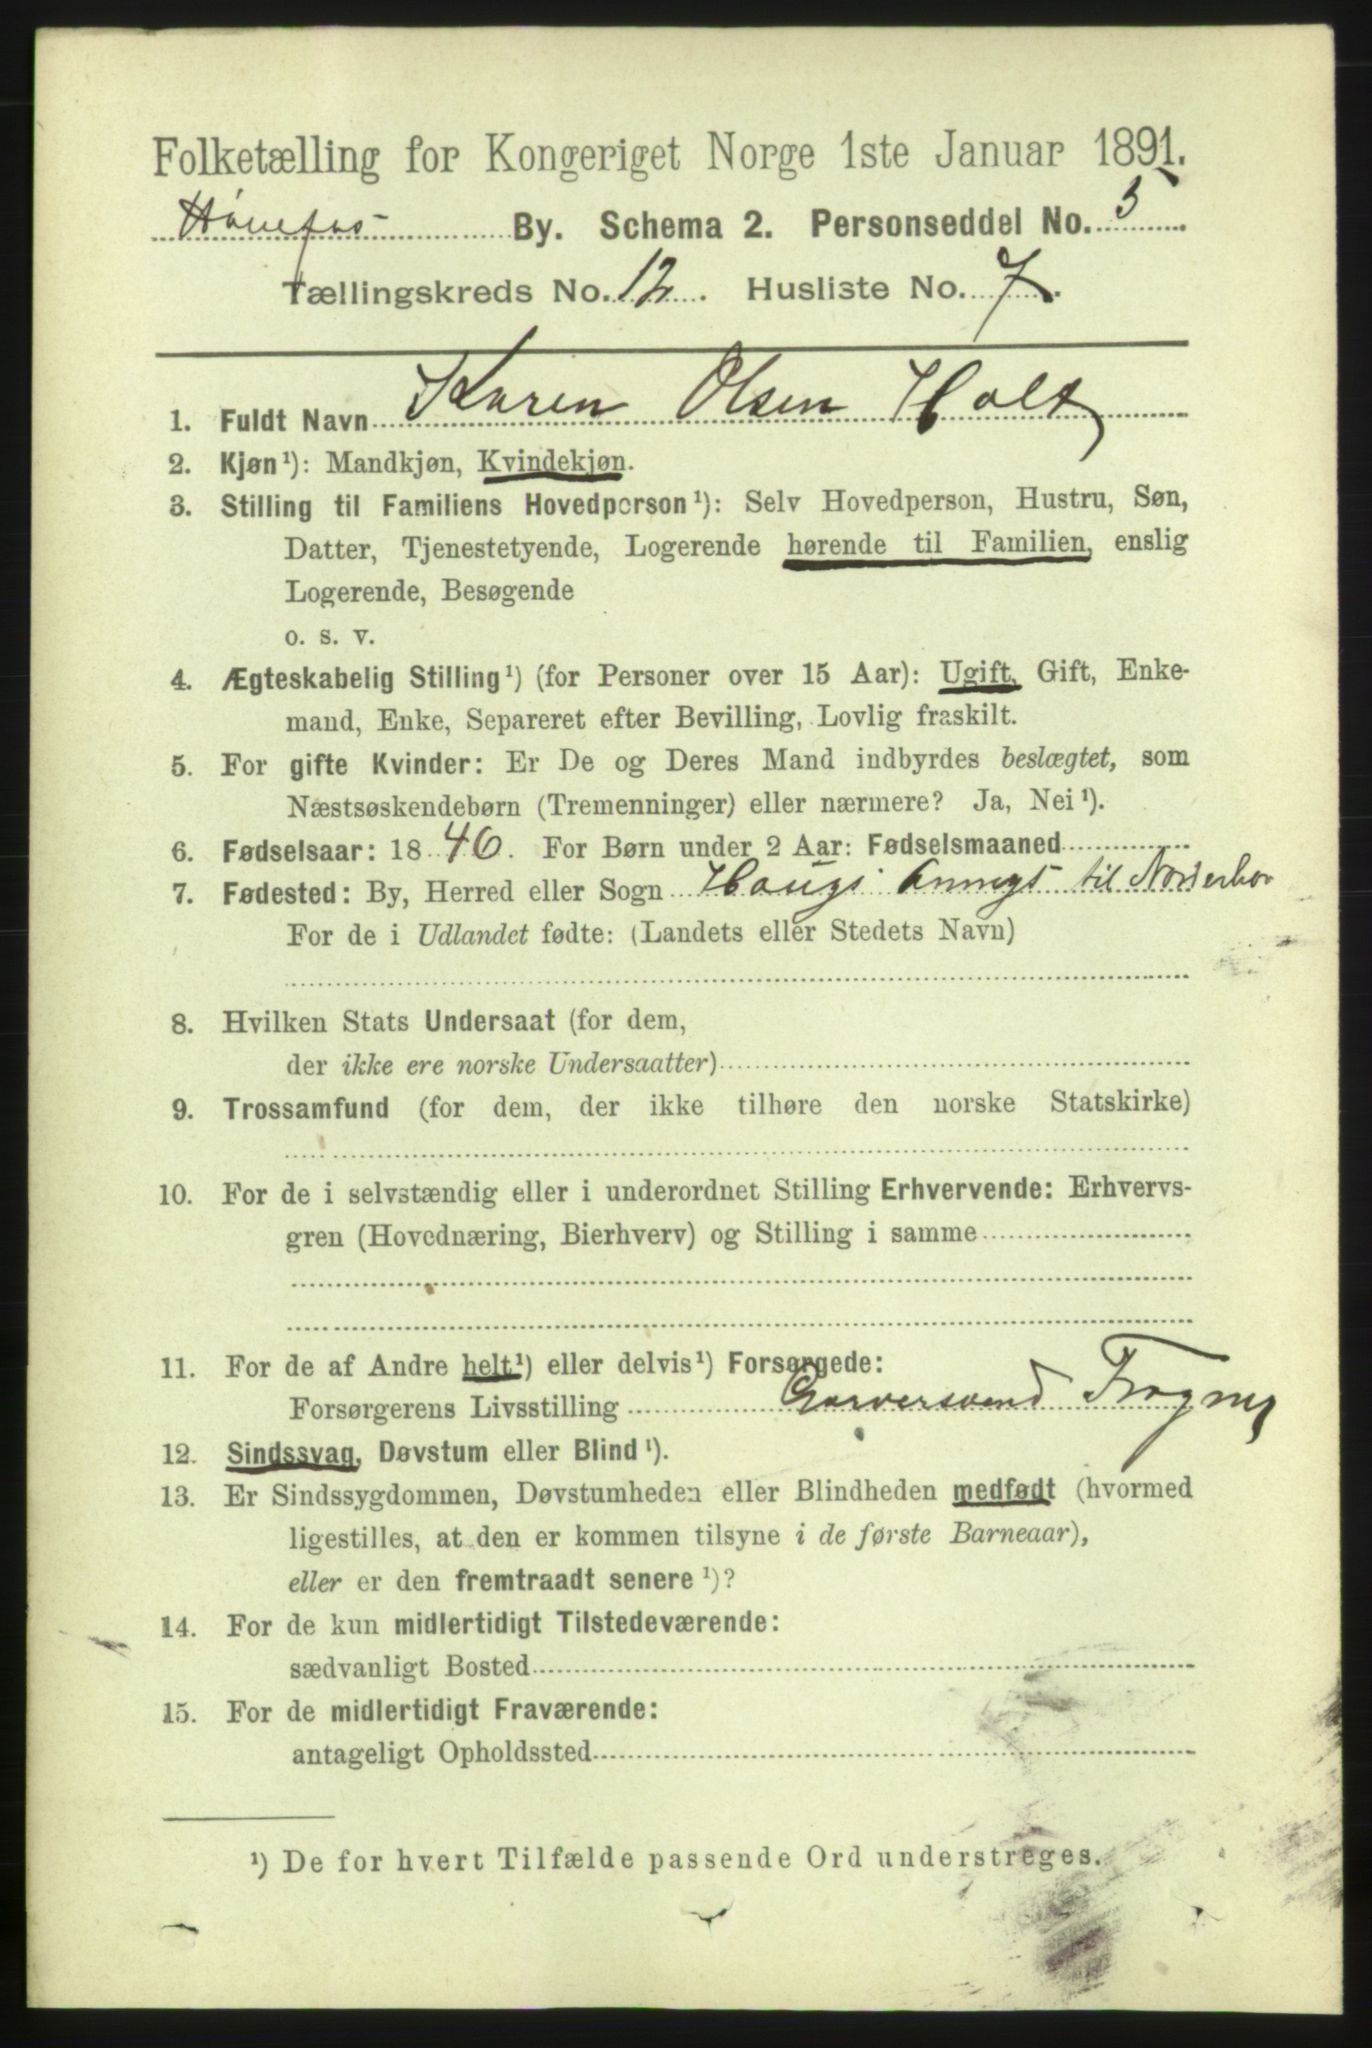 Folketælling for Kongeriget Norge 1ste Januar 1891.
Hønefos By. Schema 2. Personseddel No. 5
Tællingskreds No. 12. Husliste No. 7.
1. Fuldt Navn Karen Olsen Holt
2. Kjøn¹): Mandkjøn, Kvindekjøn.
3. Stilling til Familiens Hovedperson¹): Selv Hovedperson, Hustru, Søn,
Datter, Tjenestetyende, Logerende hørende til Familien, enslig
Logerende, Besøgende
o. s. v.
4. Ægteskabelig Stilling¹) (for Personer over 15 Aar): Ugift, Gift, Enke-
mand, Enke, Separeret efter Bevilling, Lovlig fraskilt.
5. For gifte Kvinder: Er De og Deres Mand indbyrdes beslægtet, som
Næstsøskendebørn (Tremenninger) eller nærmere? Ja, Nei¹).
6. Fødselsaar: 1846. For Børn under 2 Aar: Fødselsmaaned
7. Fødested: By, Herred eller Sogn Haugs Annegs til Norderhov
For de i Udlandet fødte: (Landets eller Stedets Navn)
8. Hvilken Stats Undersaat (for dem,
der ikke ere norske Undersaatter)
9. Trossamfund (for dem, der ikke tilhøre den norske Statskirke)
10. For de i selvstændig eller i underordnet Stilling Erhvervende: Erhvervs-
gren (Hovednæring, Bierhverv) og Stilling i samme
11. For de af Andre helt¹) eller delvis¹) Forsørgede:
Forsørgerens Livsstilling Garversvend
12. Sindssvag, Døvstum eller Blind¹).
13. Er Sindssygdommen, Døvstumheden eller Blindheden medfødt (hvormed
ligestilles, at den er kommen tilsyne i de første Barneaar),
eller er den fremtraadt senere¹)?
14. For de kun midlertidigt Tilstedeværende:
sædvanligt Bosted
15. For de midlertidigt Fraværende:
antageligt Opholdssted
¹) De for hvert Tilfælde passende Ord understreges.